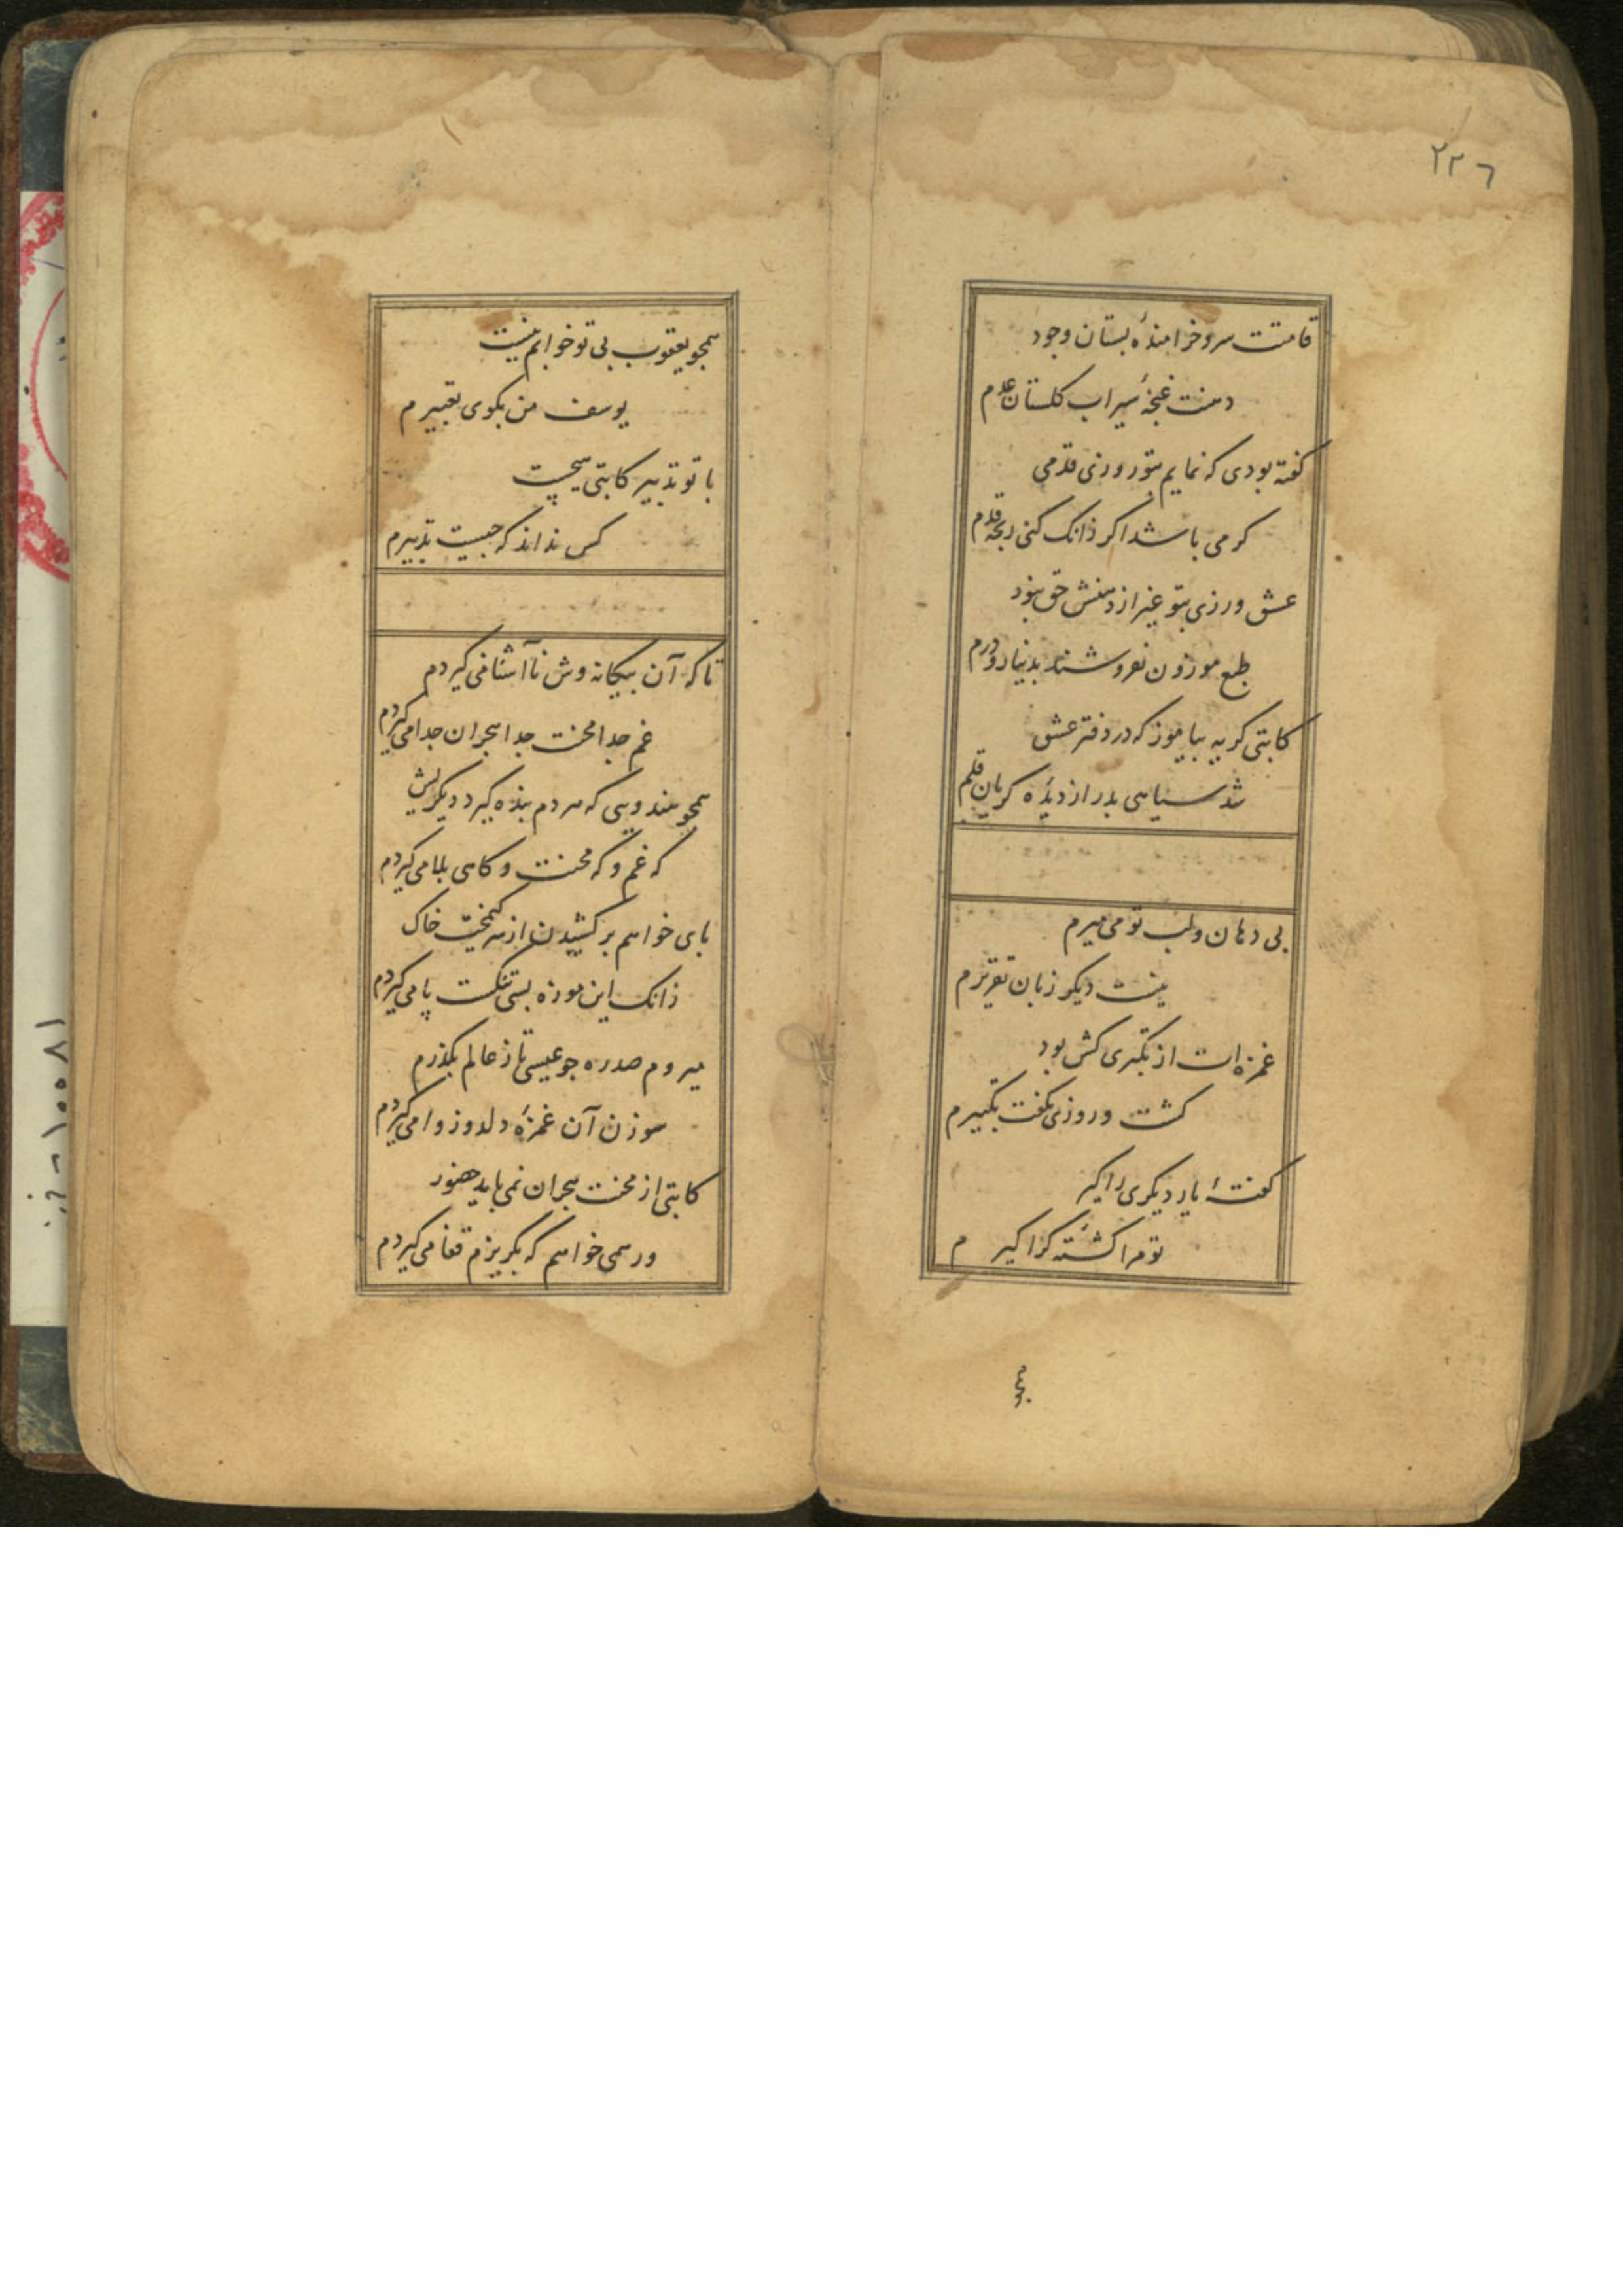 ٢٢٦
قامتت سرو خرامندهٔ بستان وجود
دهنت غنچهٔ سیراب کلستان عدم
کفته بودی که نمایم بتو روزی قدمی
کرمی باشد اکر زانک کنی رنجه قدم
عشق ورزی بتو غیر از دهنش حق نبود
طبع موزون نفروشند بدینار و درم
کاتبی کریه بیاموز که در دفتر عشق
شد سیاهی بدر از دیدهٔ کریان قلم
بی دهان و لب تو می میرم
نیست دیکر زبان تقریرم
غمزه ات از تکبری کش بود
کشت و روزی نکفت تکبیرم
کفتهٔ یار دیکری را کیر
تو مرا کشتهٔ کرا کیرم
همچو یعقوب بی تو خوابم نیست
یوسف من بکوی تعبیرم
با تو تدبیر کاتبی هیچست
کس نداند که چیست تدبیرم
تا که آن بیکانه وش ناآشنا می کیردم
غم جدا محنت جدا هجران جدا می کیردم
همچو هندویی که مردم بنده کیرد دیکرش
که غم و که محنت و کاهی بلا می کیردم
پای خواهم بر کشیدن از سر کیمخت خاک
زانک این موزه بسی تنکست پا می کیردم
میروم صد ره چو عیسی تا ز عالم بکذرم
سوزن آن غمزهٔ دلدوز وا می کیردم
کاتبی از محنت هجران نمی باید حضور
ور همی خواهم که بکریزم قفا می کیردم
١٠٠٨١